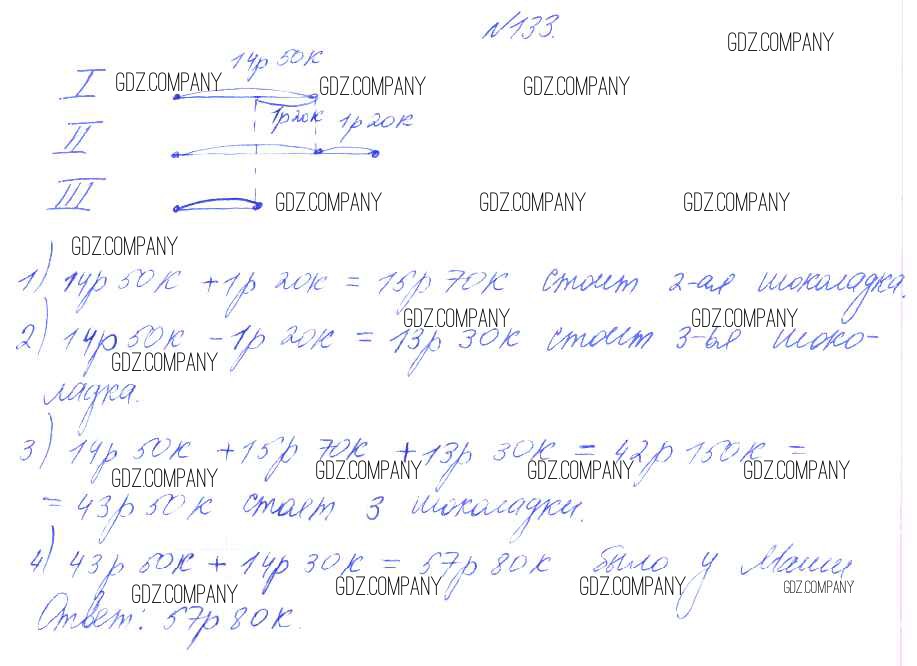 №133.
GDZ.COMPANY
14р 50к
I GDZ.COMPANY GDZ.COMPANY GDZ.COMPANY
1р20к 1р20к
II
III GDZ.COMPANY GDZ.COMPANY GDZ.COMPANY
GDZ.COMPANY
1) 14р 50к + 1р 20к = 15р 70к стоит 2-ая шоколадка.
GDZ.COMPANY GDZ.COMPANY
2) 14р 50к - 1р 20к = 13р 30к стоит 3-ья шоко-
GDZ.COMPANY
ладка.
3) 14р 50к + 15р 70к + 13р 30к = 42р 150к =
GDZ.COMPANY GDZ.COMPANY GDZ.COMPANY GDZ.COMPANY
= 43р 50к стоят 3 шоколадки.
4) 43р 50к + 14р 30к = 57р 80к было у Маши
GDZ.COMPANY GDZ.COMPANY GDZ.COMPANY GDZ.COMPANY
Ответ: 57р 80к.